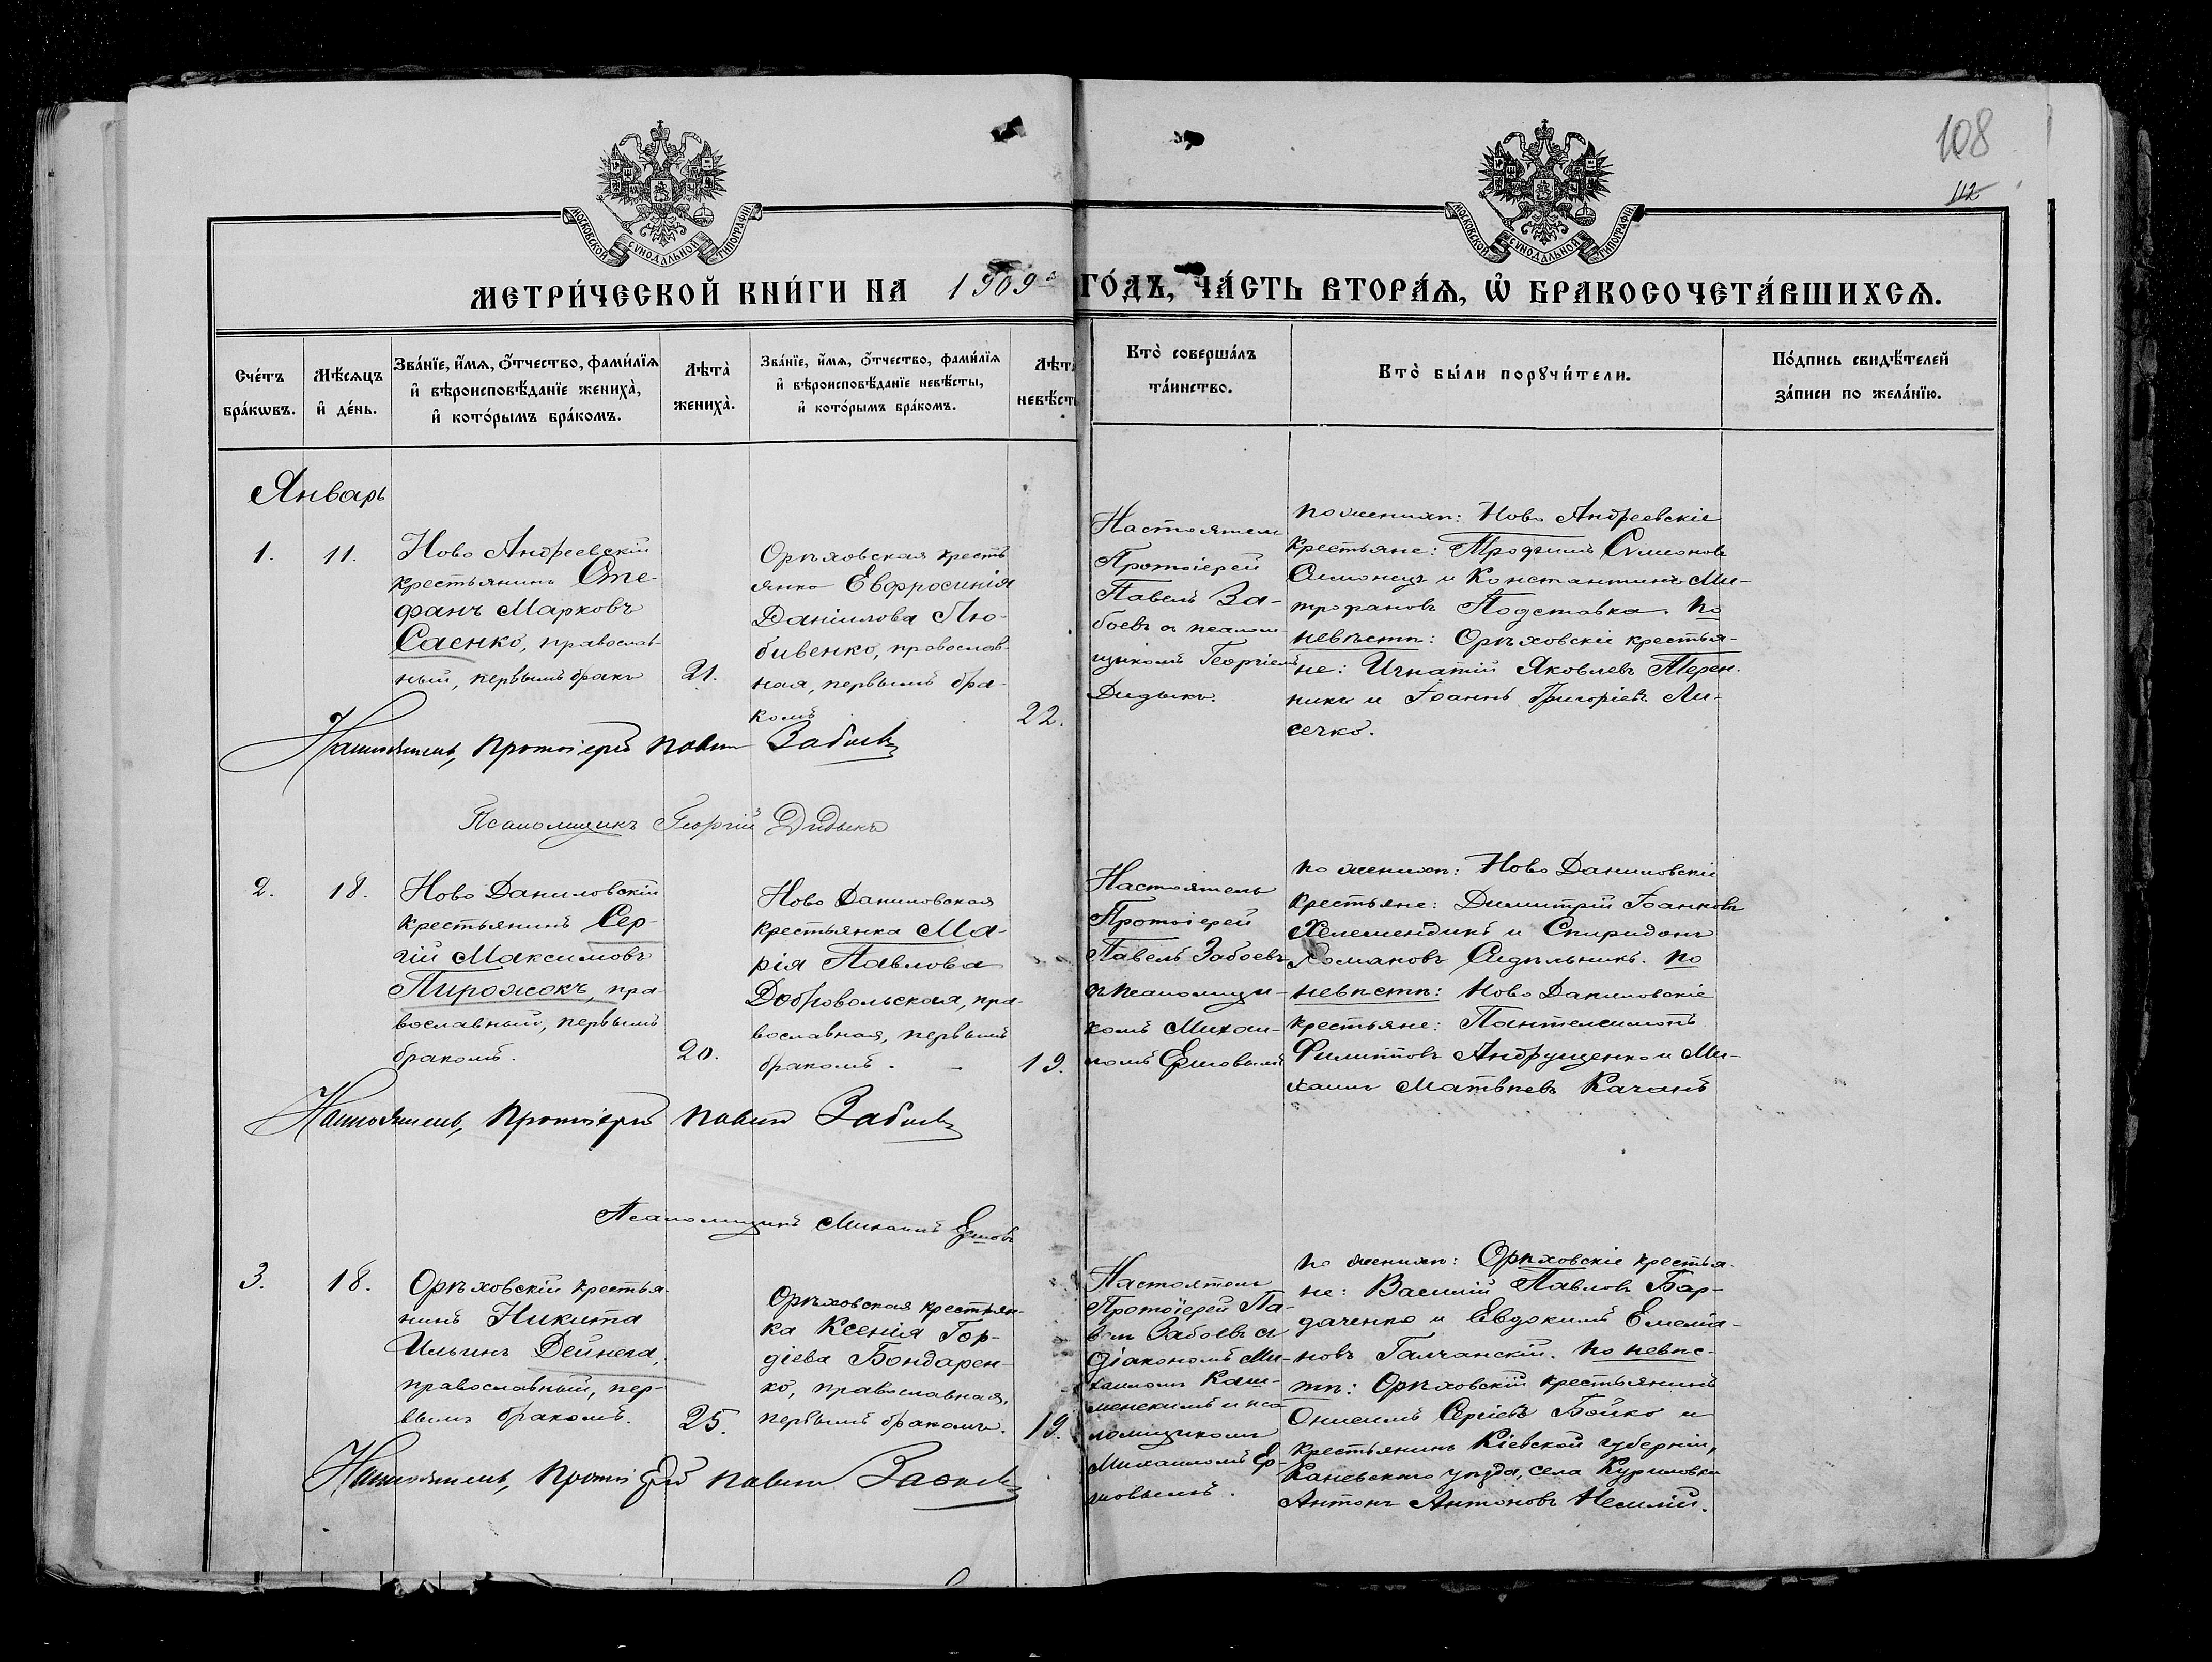 108
112
МОСКОВСКОЙ СѴНОДАЛЬНОЙ ТИПОГРАФІИ
МОСКОВСКОЙ СѴНОДАЛЬНОЙ ТИПОГРАФІИ
МЕТРИ́ЧЕСКОЙ КНИ́ГИ НА 1909 ГО́ДЪ, ЧА́СТЬ ВТОРА́Я, Ѡ҆ БРАКОСОЧЕТА́ВШИХСѦ.
Сче́тъ
бра́кѡвъ.
Мѣ́сяцъ
и҆ де́нь.
Зва́нїе, и҆́мѧ, ѻ҆́тчество, фами́лїѧ
и҆ вѣроисповѣ́данїе жениха̀,
и҆ кото́рымъ бра́комъ.
Лѣта̀
жениха̀.
Зва́нїе, и҆́мѧ, ѻ҆́тчество, фами́лїѧ
и҆ вѣроисповѣ́данїе невѣ́сты,
и҆ кото́рымъ бра́комъ.
Лѣта̀
невѣ́сты
Кто̀ соверша́лъ
та́инство.
Кто̀ бы́ли порꙋчи́тели.
По́дпись свидѣ́телей
за́писи по жела́нїю.
Январь
1.
11.
Ново Андреевскій
крестьянинъ Сте-
фанъ Марковъ
Саенко, православ-
ный, первымъ бракъ
21.
Орѣховская кресть
янка Евфросинія
Даніилова Лю-
бивенко, православ-
ная, первымъ бра-
комъ
22.
Настоятель
Протоіерей
Павелъ За-
боевъ съ псалом-
щикомъ Георгіемъ
Дидыкъ
по женихѣ: Ново Андреевскіе
крестьяне: Трофимъ Симеоновъ
Симонецъ и Константинъ Ми-
трофановъ Подставка. По
невѣстѣ: Орѣховскіе крестья-
не: Игнатій Яковлевъ Терен-
никъ и Іоаннъ Григоріевъ Ли-
сечко.
Настоятель, Протоіерей Павелъ Забоевъ
Псаломщикъ Георгій Дидыкъ
2.
18.
Ново Даниловскій
крестьянинъ Сер-
гій Максимовъ
Пирожокъ, пра-
вославный, первымъ
бракомъ.
20.
Ново Даниловская
крестьянка Ма-
рія Павлова
Добровольская, пра-
вославная, первымъ
бракомъ.
19.
Настоятель
Протоіерей
Павелъ Забоевъ
съ псаломщи-
комъ Михаи-
ломъ Ершовымъ
по женихѣ: Ново Даниловскіе
крестьяне: Димитрій Іоанновъ
Хелемендикъ и Спиридонъ
Романовъ Сидѣльникъ. По
невѣстѣ: Ново Даниловскіе
крестьяне: Пантелеимонъ
Филипповъ Андрущенко и Ми-
хаилъ Матвѣевъ Качанъ
Настоятель, Протоіерей Павелъ Забоевъ
Псаломщикъ Михаилъ Ершовъ
3.
18.
Орѣховскій крестья-
нинъ Никита
Ильинъ Дейнега,
православный, пер-
вымъ бракомъ.
25.
Орѣховская крестьян-
ка Ксенія Гор-
діева Бондарен-
ко, православная,
первымъ бракомъ.
19.
Настоятель
Протоіерей Па-
велъ Забоевъ съ
діакономъ Ми-
хаиломъ Каш-
менскимъ и пса
ломщикомъ
Михаиломъ Ер-
шовымъ.
по женихѣ: Орѣховскіе крестья-
не: Василій Павловъ Бар-
даченко и Евдокимъ Емелья-
новъ Галчанскій. По невѣс-
тѣ: Орѣховскій крестьянинъ
Онисимъ Сергіевъ Бойко и
крестьянинъ Кіевской губерніи,
Каневскаго уѣзда, села Куриловки
Антонъ Антоновъ Немлій.
Настоятель, Протоіерей Павелъ Забоевъ